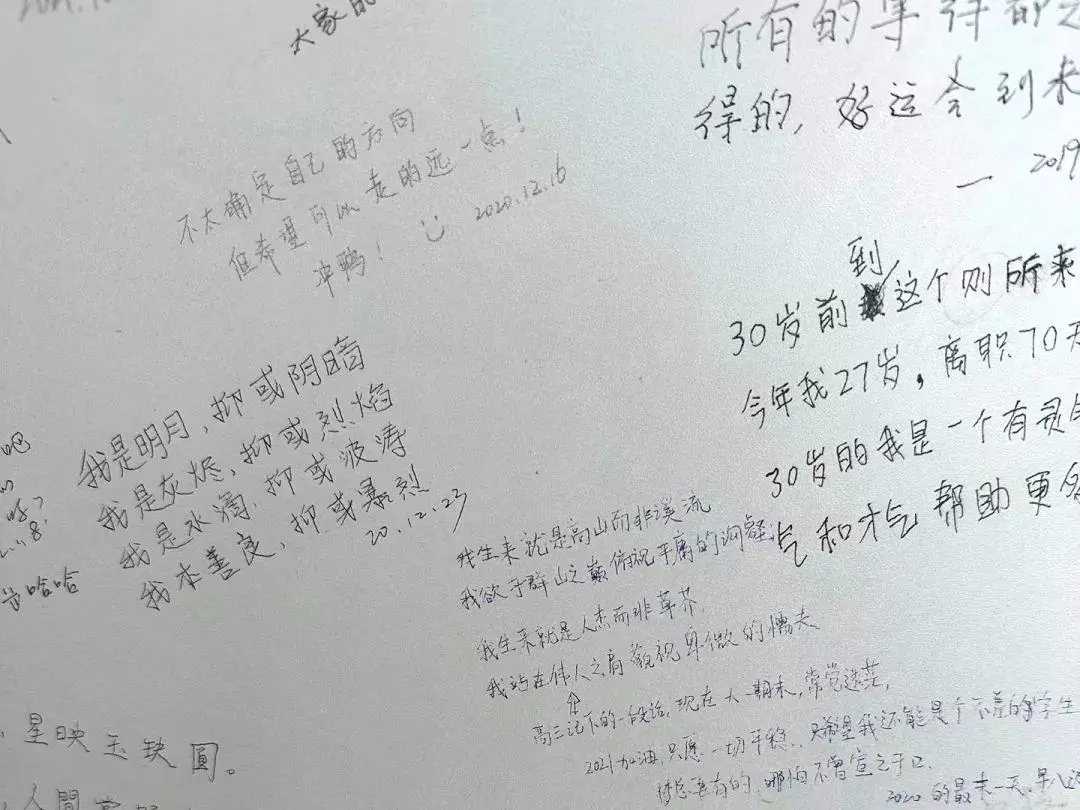 大家的
不太确定自己的方向
但希望可以走的远一点！
冲鸭！ 2020.12.16
所有的等待都是
得的，好运会到来
— 2019
30岁前到这个则所来
今年我27岁，离职70天
30岁的我是一个有灵的
气和才气 帮助更多
我是明月，抑或阴暗
我是灰烬，抑或烈焰
我是水滴，抑或波涛
我本善良，抑或暴烈
20.12.23
吧
哈哈
我生来就是高山而非溪流
我欲于群山之巅俯视平庸的沟壑
我生来就是人杰而非草芥
我站在伟人之肩藐视卑微的懦夫
高三记下的一段话，现在大一期末，常觉迷茫，
2021加油，只愿一切平稳，希望我还能是个不差的学生
总要有的，哪怕不曾宣之于口.
2020的最末一天，早八
星映玉玦圆。
人間